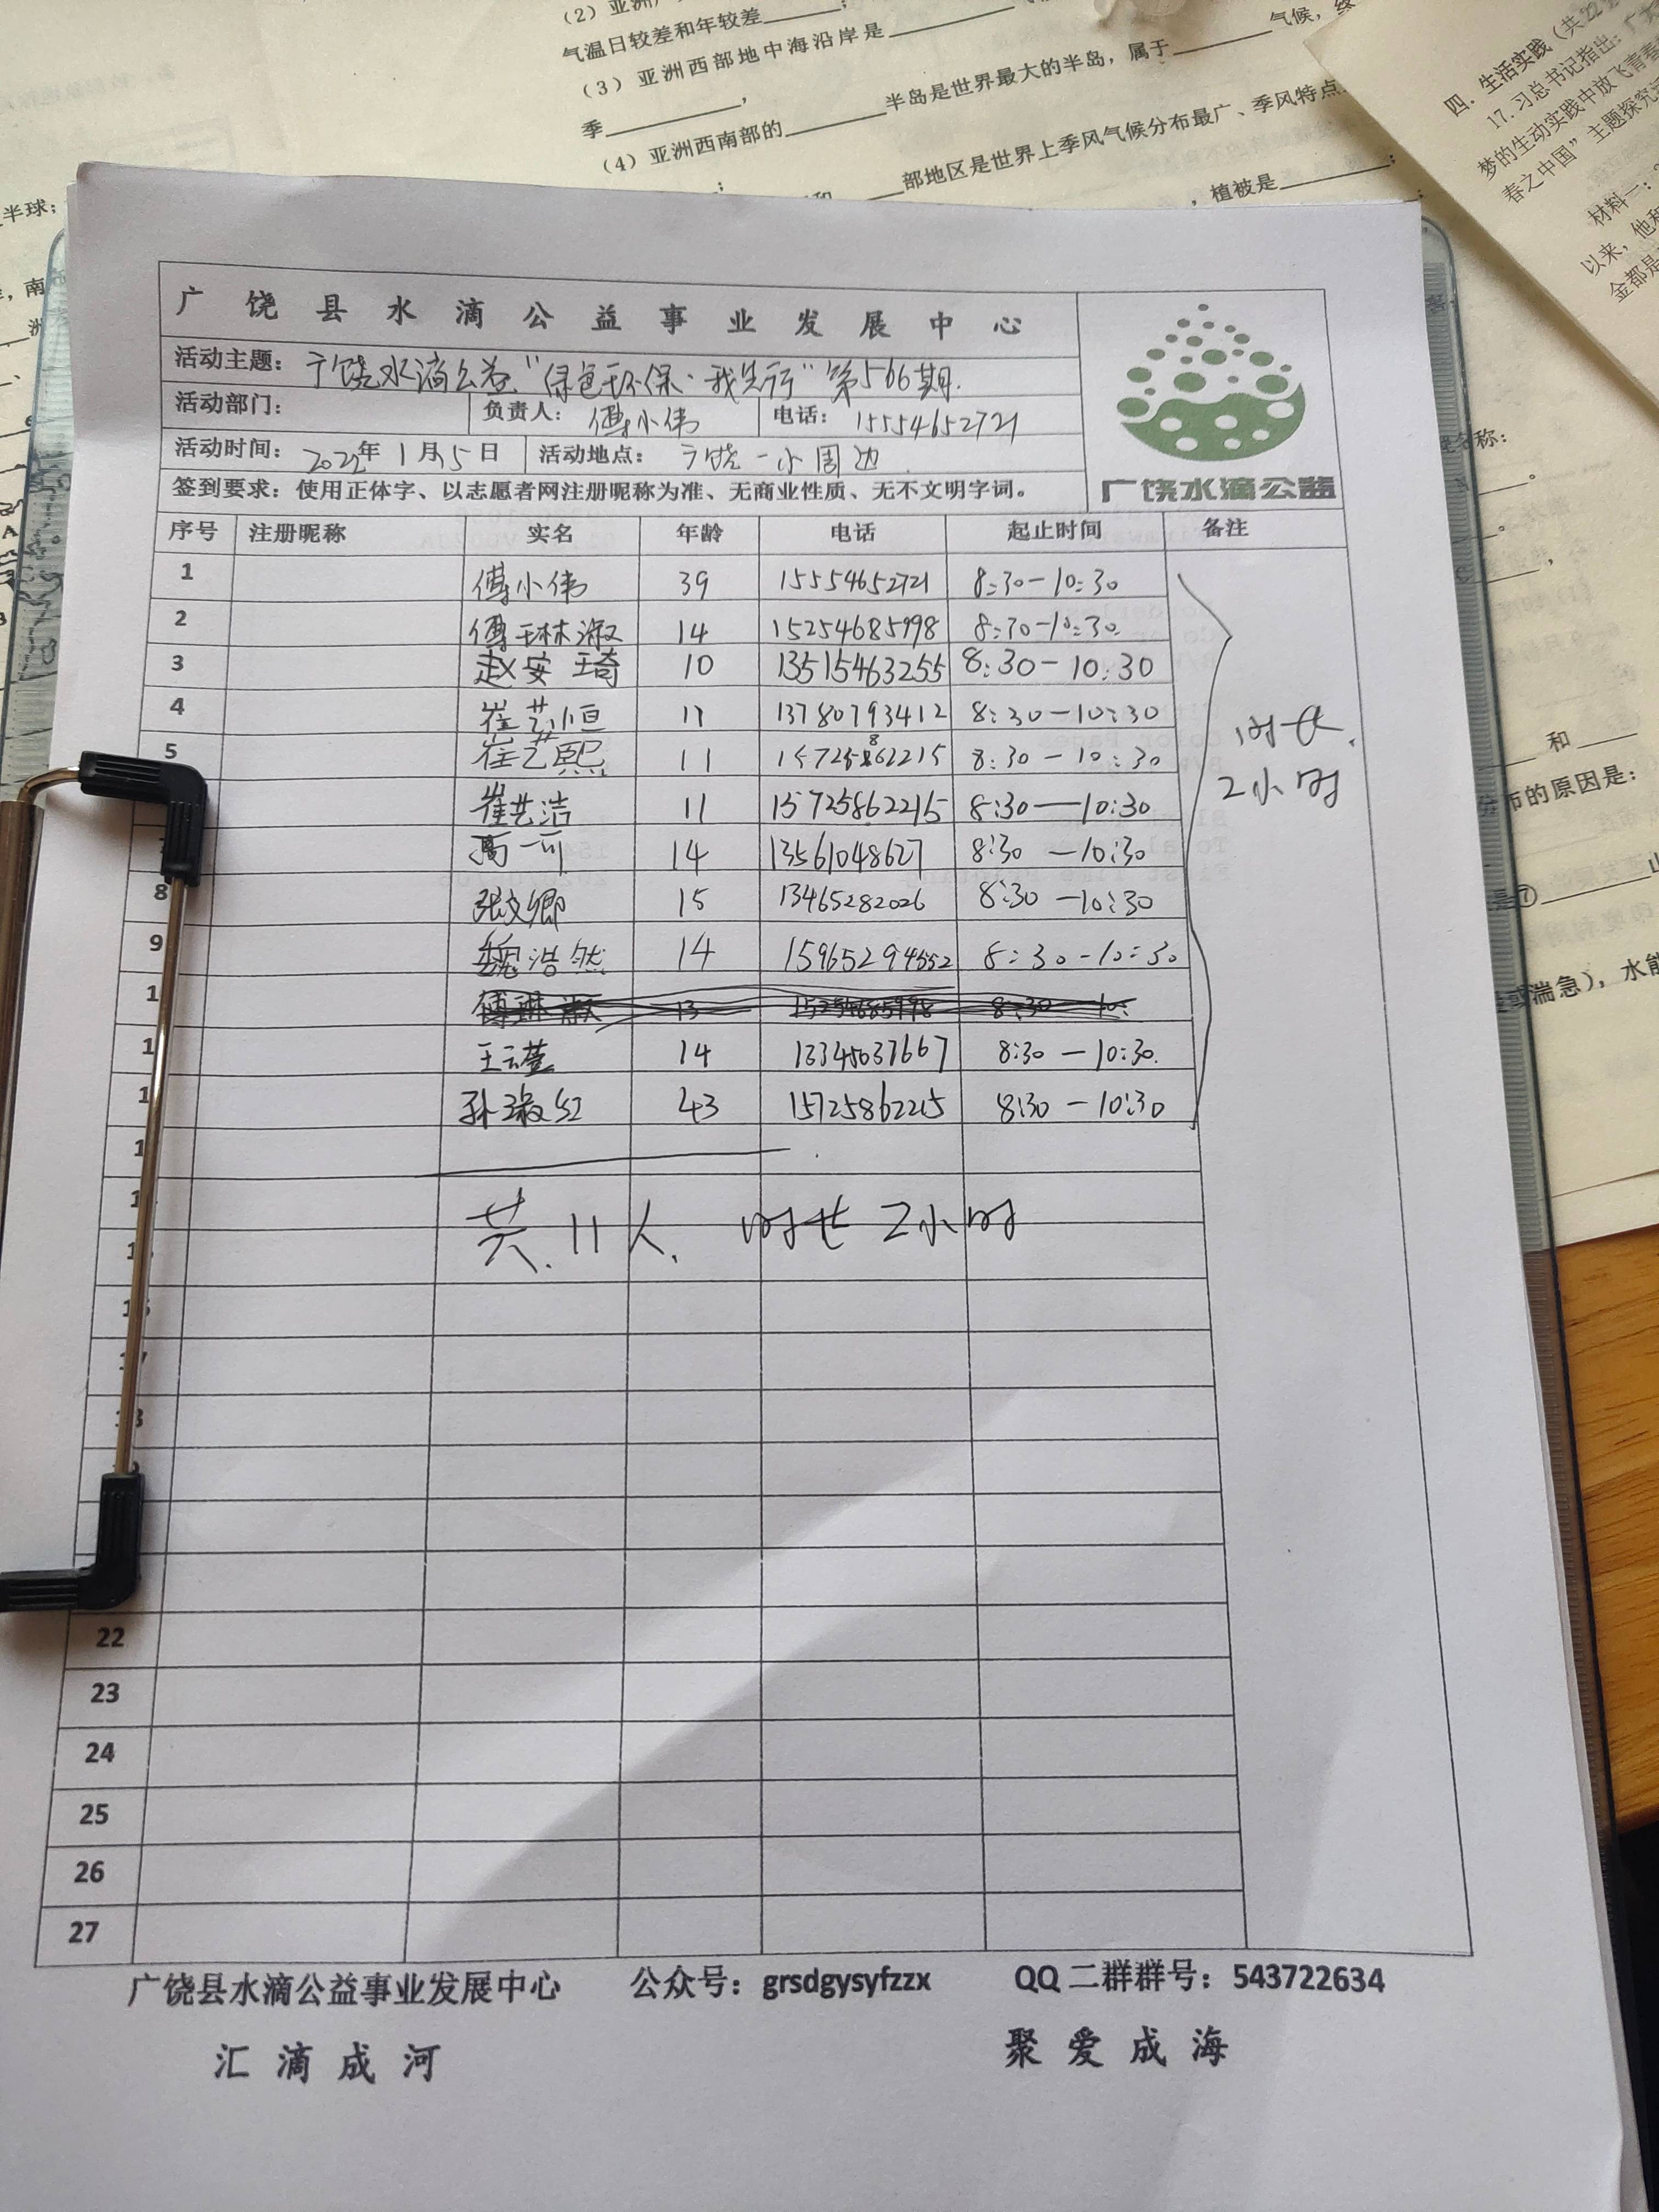 (2) 亚洲
气温日较差和年较差______;
(3) 亚洲西部地中海沿岸是______
季______,
半岛是世界最大的半岛,属于______气候,
(4) 亚洲西南部的______
部地区是世界上季风气候分布最广、季风特点
,植被是______;
四. 生活实践(共22
17.习总书记指出:广
梦的生动实践中放飞青春
春之中国”主题探究
材料一:
以来,他和
金都是
半球;
广饶县水滴公益事业发展中心
活动主题: 广饶水滴公益“绿色环保·我先行”第566期.
活动部门: 负责人: 傅小伟 电话: 15554652721
活动时间: 2022年1月15日 活动地点: 广饶一小周边
签到要求:使用正体字、以志愿者网注册昵称为准、无商业性质、无不文明字词。
广饶水滴公益
序号 注册昵称 实名 年龄 电话 起止时间 备注
1 傅小伟 39 15554652721 8:30-10:30
2 傅琳淑 14 15254685998 8:30-10:30
3 赵安琦 10 13515463255 8:30-10:30
4 崔艺恒 11 13780793412 8:30-10:30
5 崔艺熙 11 15725862215 8:30-10:30
崔艺浩 11 15725862215 8:30—10:30
14 13561048627 8:30—10:30
8 张文卿 15 13465282026 8:30—10:30
9 魏浩然 14 15965294552 8:30-10:30
1 傅琳淑 13 15254685998 8:30—10:
1 王云莹 14 13345037667 8:30—10:30.
1 孙淑红 43 15725862215 8:30—10:30
时长
2小时
共11人. 时长2小时
22
23
24
25
26
27
广饶县水滴公益事业发展中心 公众号:grsdgysyfzzx QQ二群群号:543722634
汇滴成河 聚爱成海
和
布的原因是:
或湍急),水能